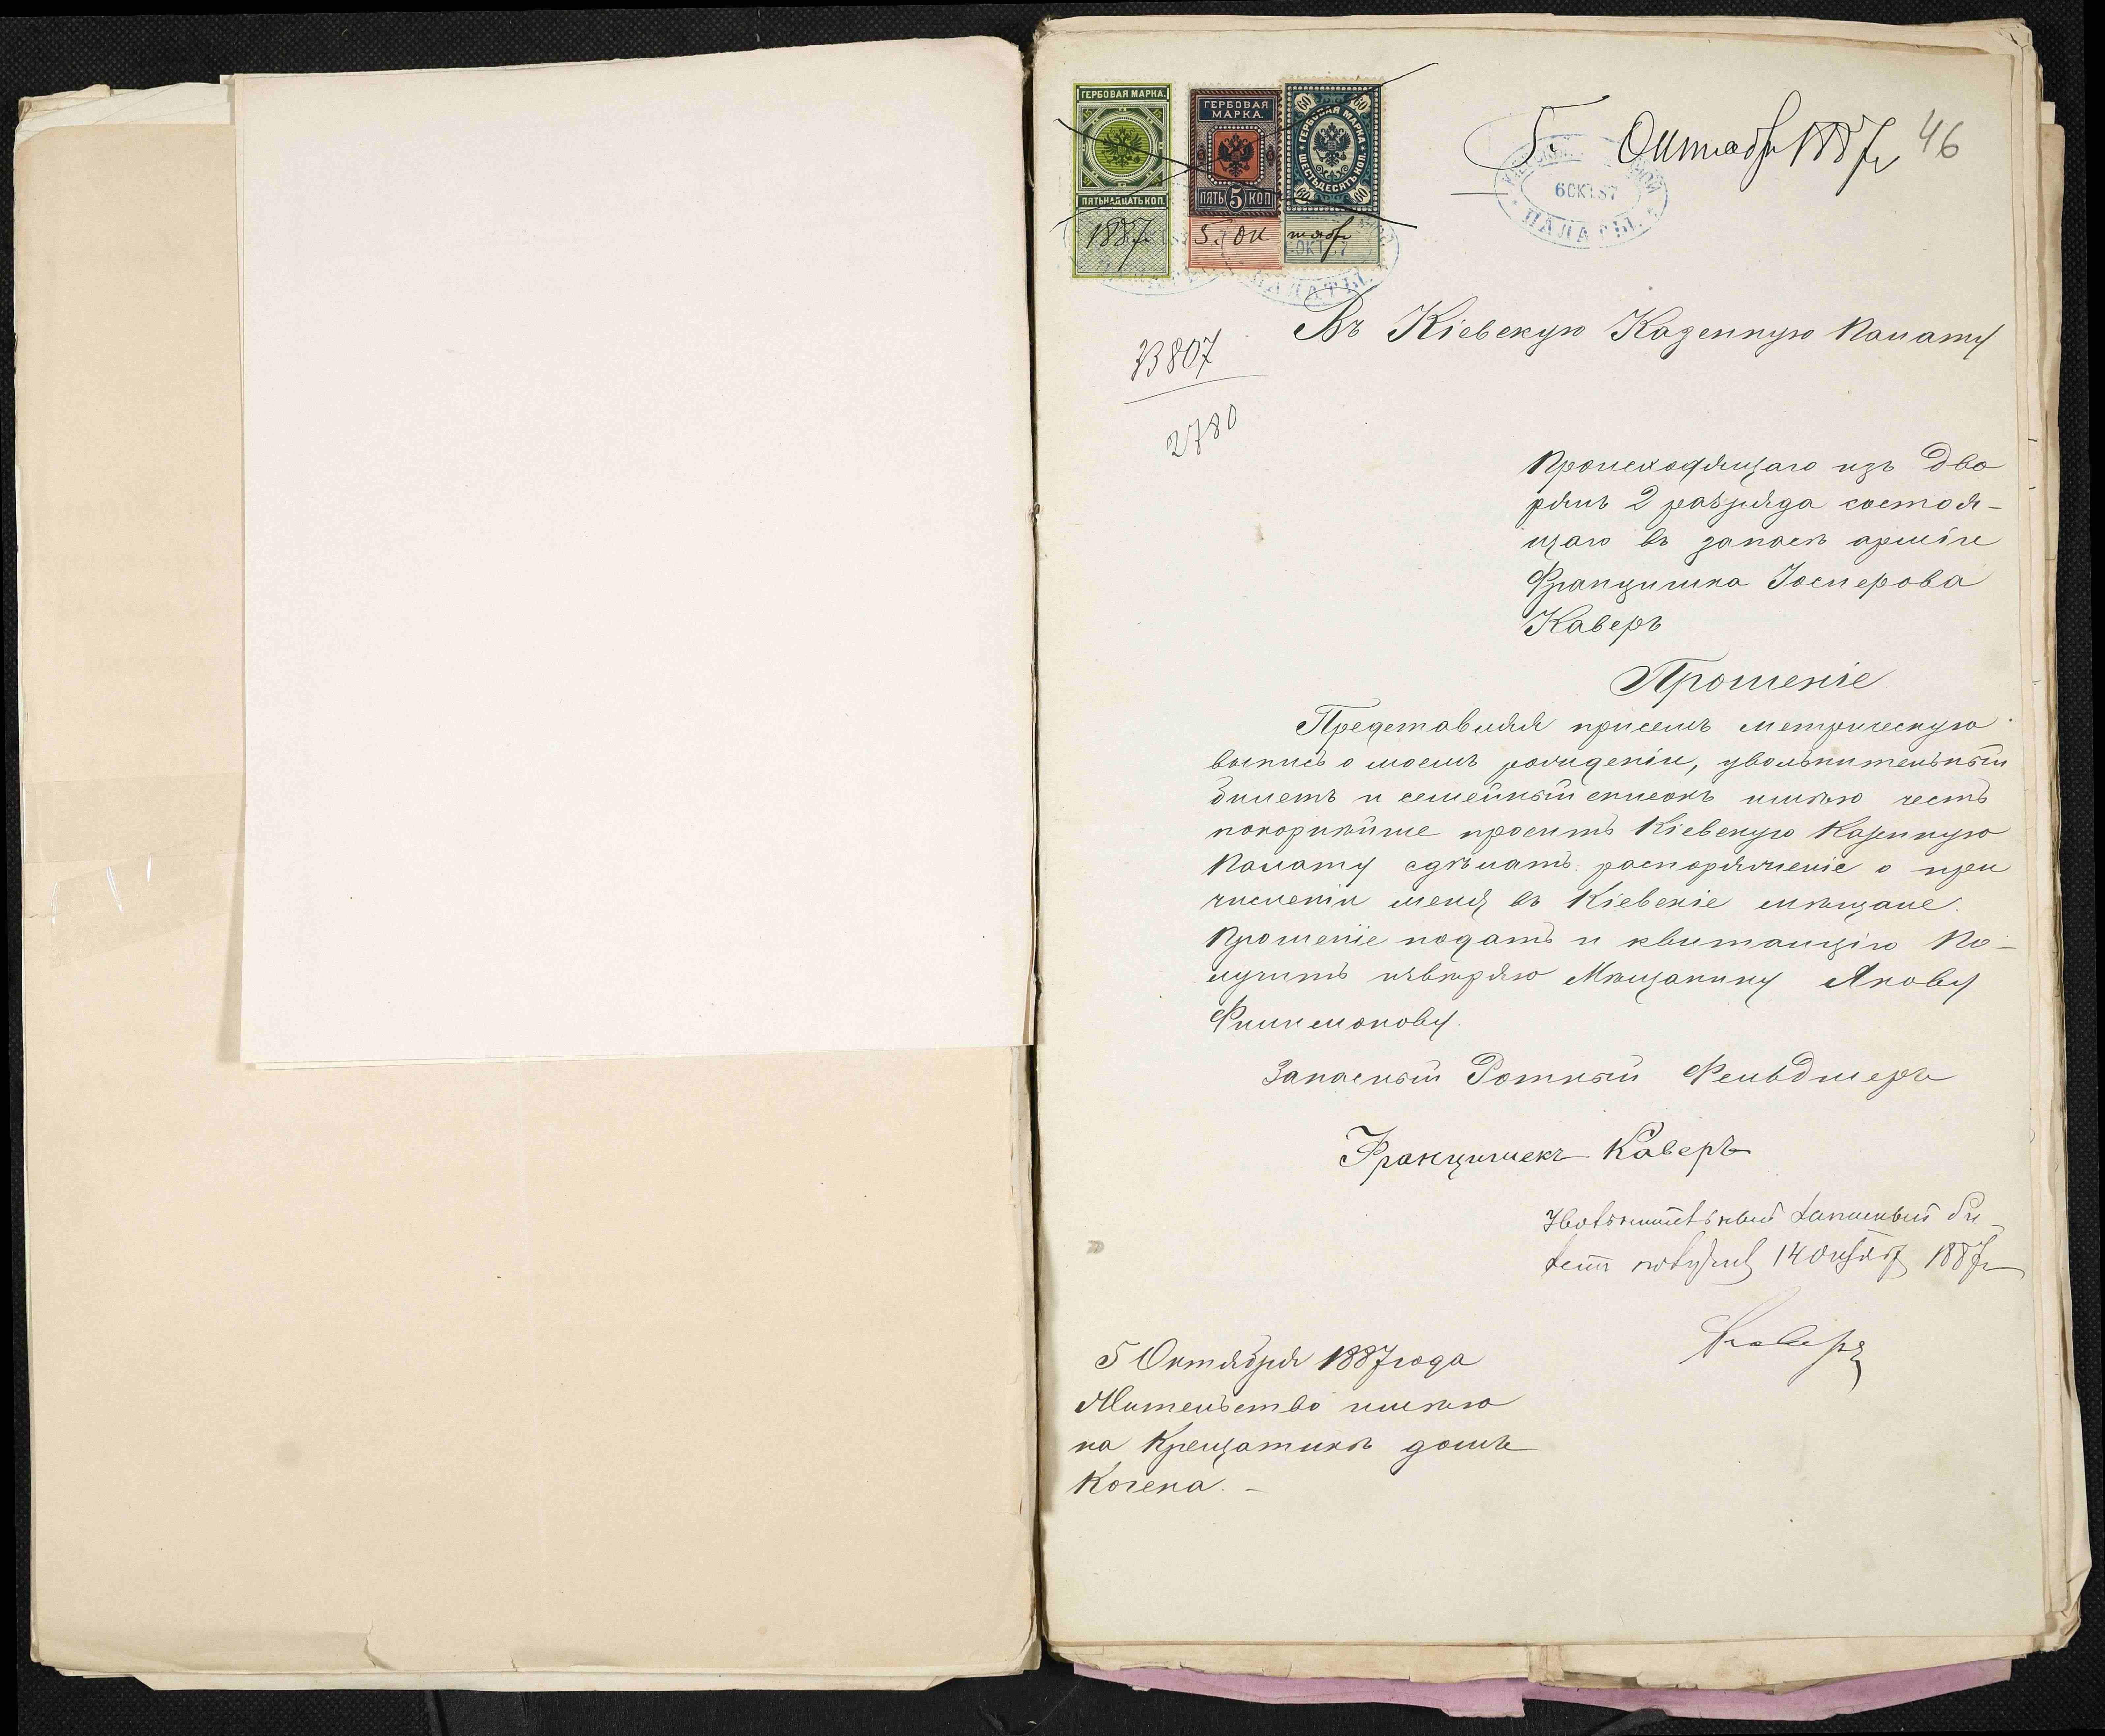 ГЕРБОВАЯ МАРКА.
ПЯТЬНАДЦАТЬ КОП.
1887 г
ГЕРБОВАЯ
МАРКА.
ПЯТЬ 5 КОП
5. Ок
60 60
ГЕРБОВАЯ МАРКА
ШЕСТЬДЕСЯТЬ КОП.
60 60
тября
5. Октября 1887 г
46
6 ОКТ 87
ПАЛАТЫ.
Въ Кіевскую Казенную Палату
2780
Происходящаго изъ Дво
рянъ 2 разряда состоя-
щаго въ запасѣ арміи
Францишка Іосперова
Каверъ
Прошеніе
Представляя присемъ метрическую
выпись о моемъ рожденіи, увольнительный
билетъ и семейный списокъ имѣю честь
покорнѣйше просить Кіевскую Казенную
Палату сдѣлать распоряженіе о при
численіи меня въ Кіевскіе мѣщане.
Прошеніе подать и квитанцію По-
лучить довѣряю Мѣщанину Якову
Филимонову.
Запасный Ротный Фельдшеръ
Францишекъ Каверъ
Увольнительный запасный би-
летъ получилъ 14 Октября 1887 г
Каверъ
5 Октября 1887 года
Жительство имѣю
на Крещатикѣ домъ
Когена. -